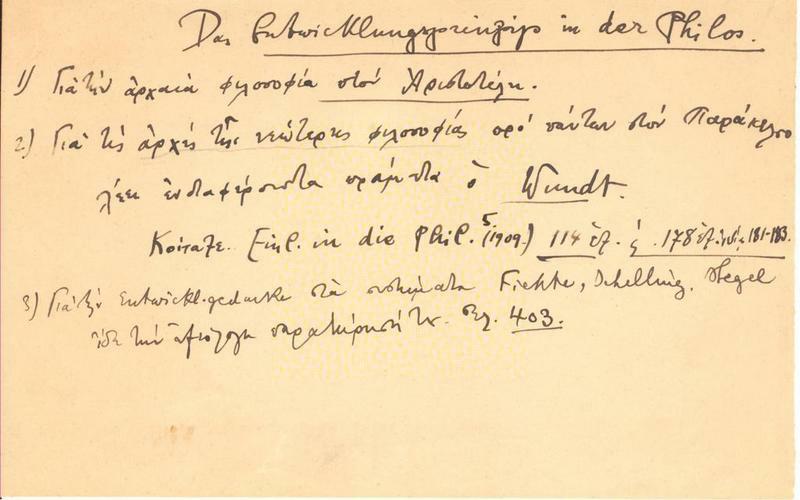 Das Entwicklungsprinzip in der Philos.
1) Γιὰ τὴν ἀρχαία φιλοσοφία στὸν Ἀριστοτέλη.
2) Γιὰ τὶς ἀρχὲς τῆς νεώτερης φιλοσοφίας πρό πάντων στὸν Παράκελσο
λέει ἐνδιαφέροντα πράματα ὁ Wundt.
Κοίταξε Einl. in die Phil.⁵ (1909) 114 ἑξ. 178 ἑξ. 181-183.
3) Γιὰ τὴν Entwickl.gedanke στὰ συστήματα Fichte, Schelling, Hegel
ἰδὲ τὴν ἀξιόλογη παρατήρησή του. Σελ. 403.